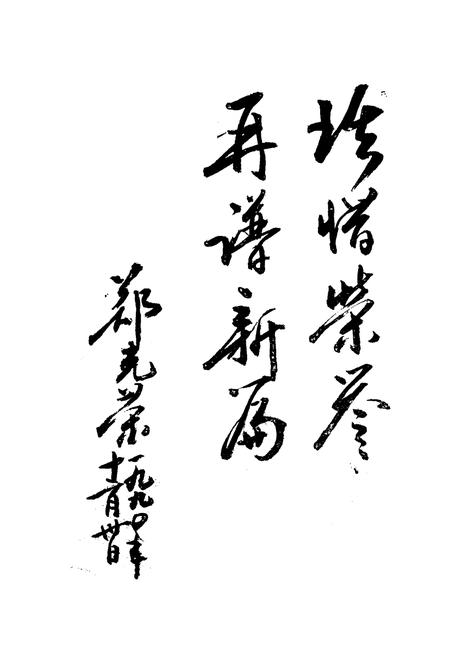 珍惜荣誉
再谱新篇
郑光荣
一九九〇年
十一月卅日